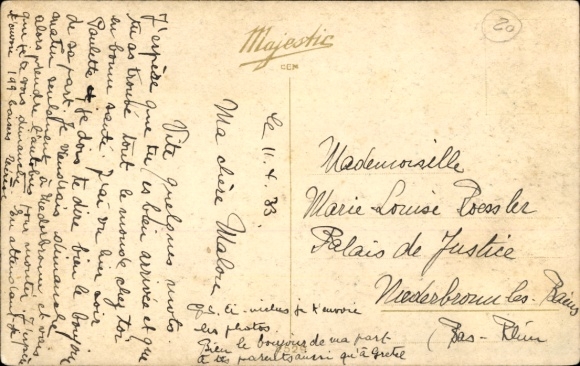 20
Majestic
Le 11.4.33.
Ma chère Malou
Vite quelques mots.
J'espère que tu es bien arrivée et que
tu as trouvé tout le monde chez toi
en bonne santé. J'ai vu hier soir
Paulette et je dois te dire bien le bonjour
de sa part. Je viendrais dimanche
matin seulement à Niederbronn et vais
alors prendre l'autobus pour monter
que je vous dimanche. En attendant je
t'envoie 199 baisers
P.S. Ci-inclus je t'envoie
les photos.
Bien le bonjour de ma part
à tes parents aussi qu'à Gretel
Mademoiselle
Marie-Louise Roessler
Palais de Justice
Niederbronn les-Bains
(Bas-Rhin)